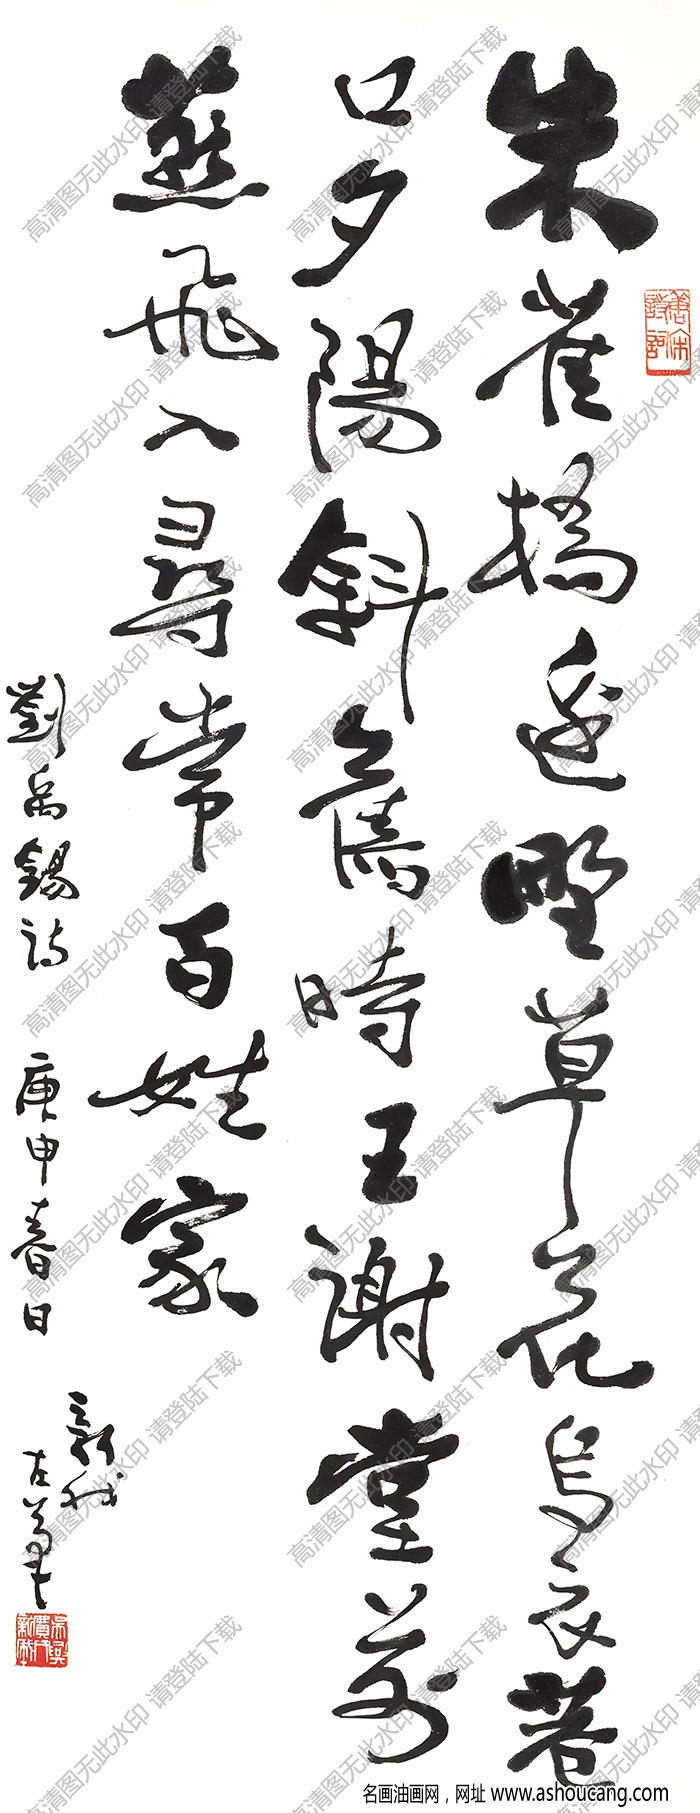 朱雀橋邊野草花烏衣巷
口夕陽斜舊時王謝堂前
燕飛入尋常百姓家
劉禹錫詩 庚申春日
新我
左筆
唐宋詩詞
高清图无此水印 请登陆下载
名画油画网，网址 www.ashoucang.com